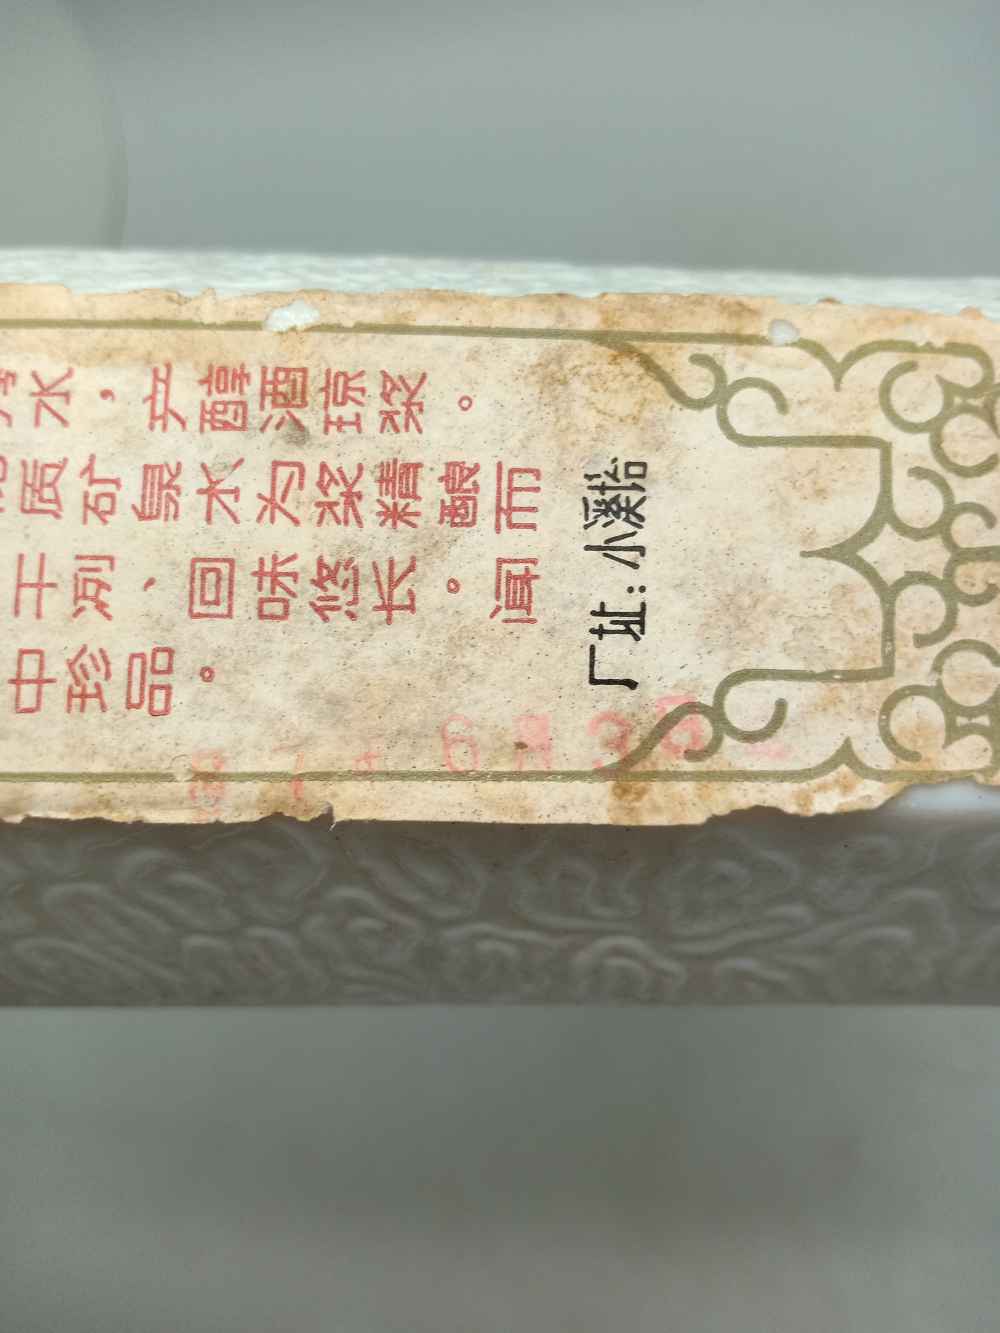 水，产醇酒琼浆。
质矿泉水为浆精酿而
干冽、回味悠长。闻
中珍品。
厂址：小溪塔